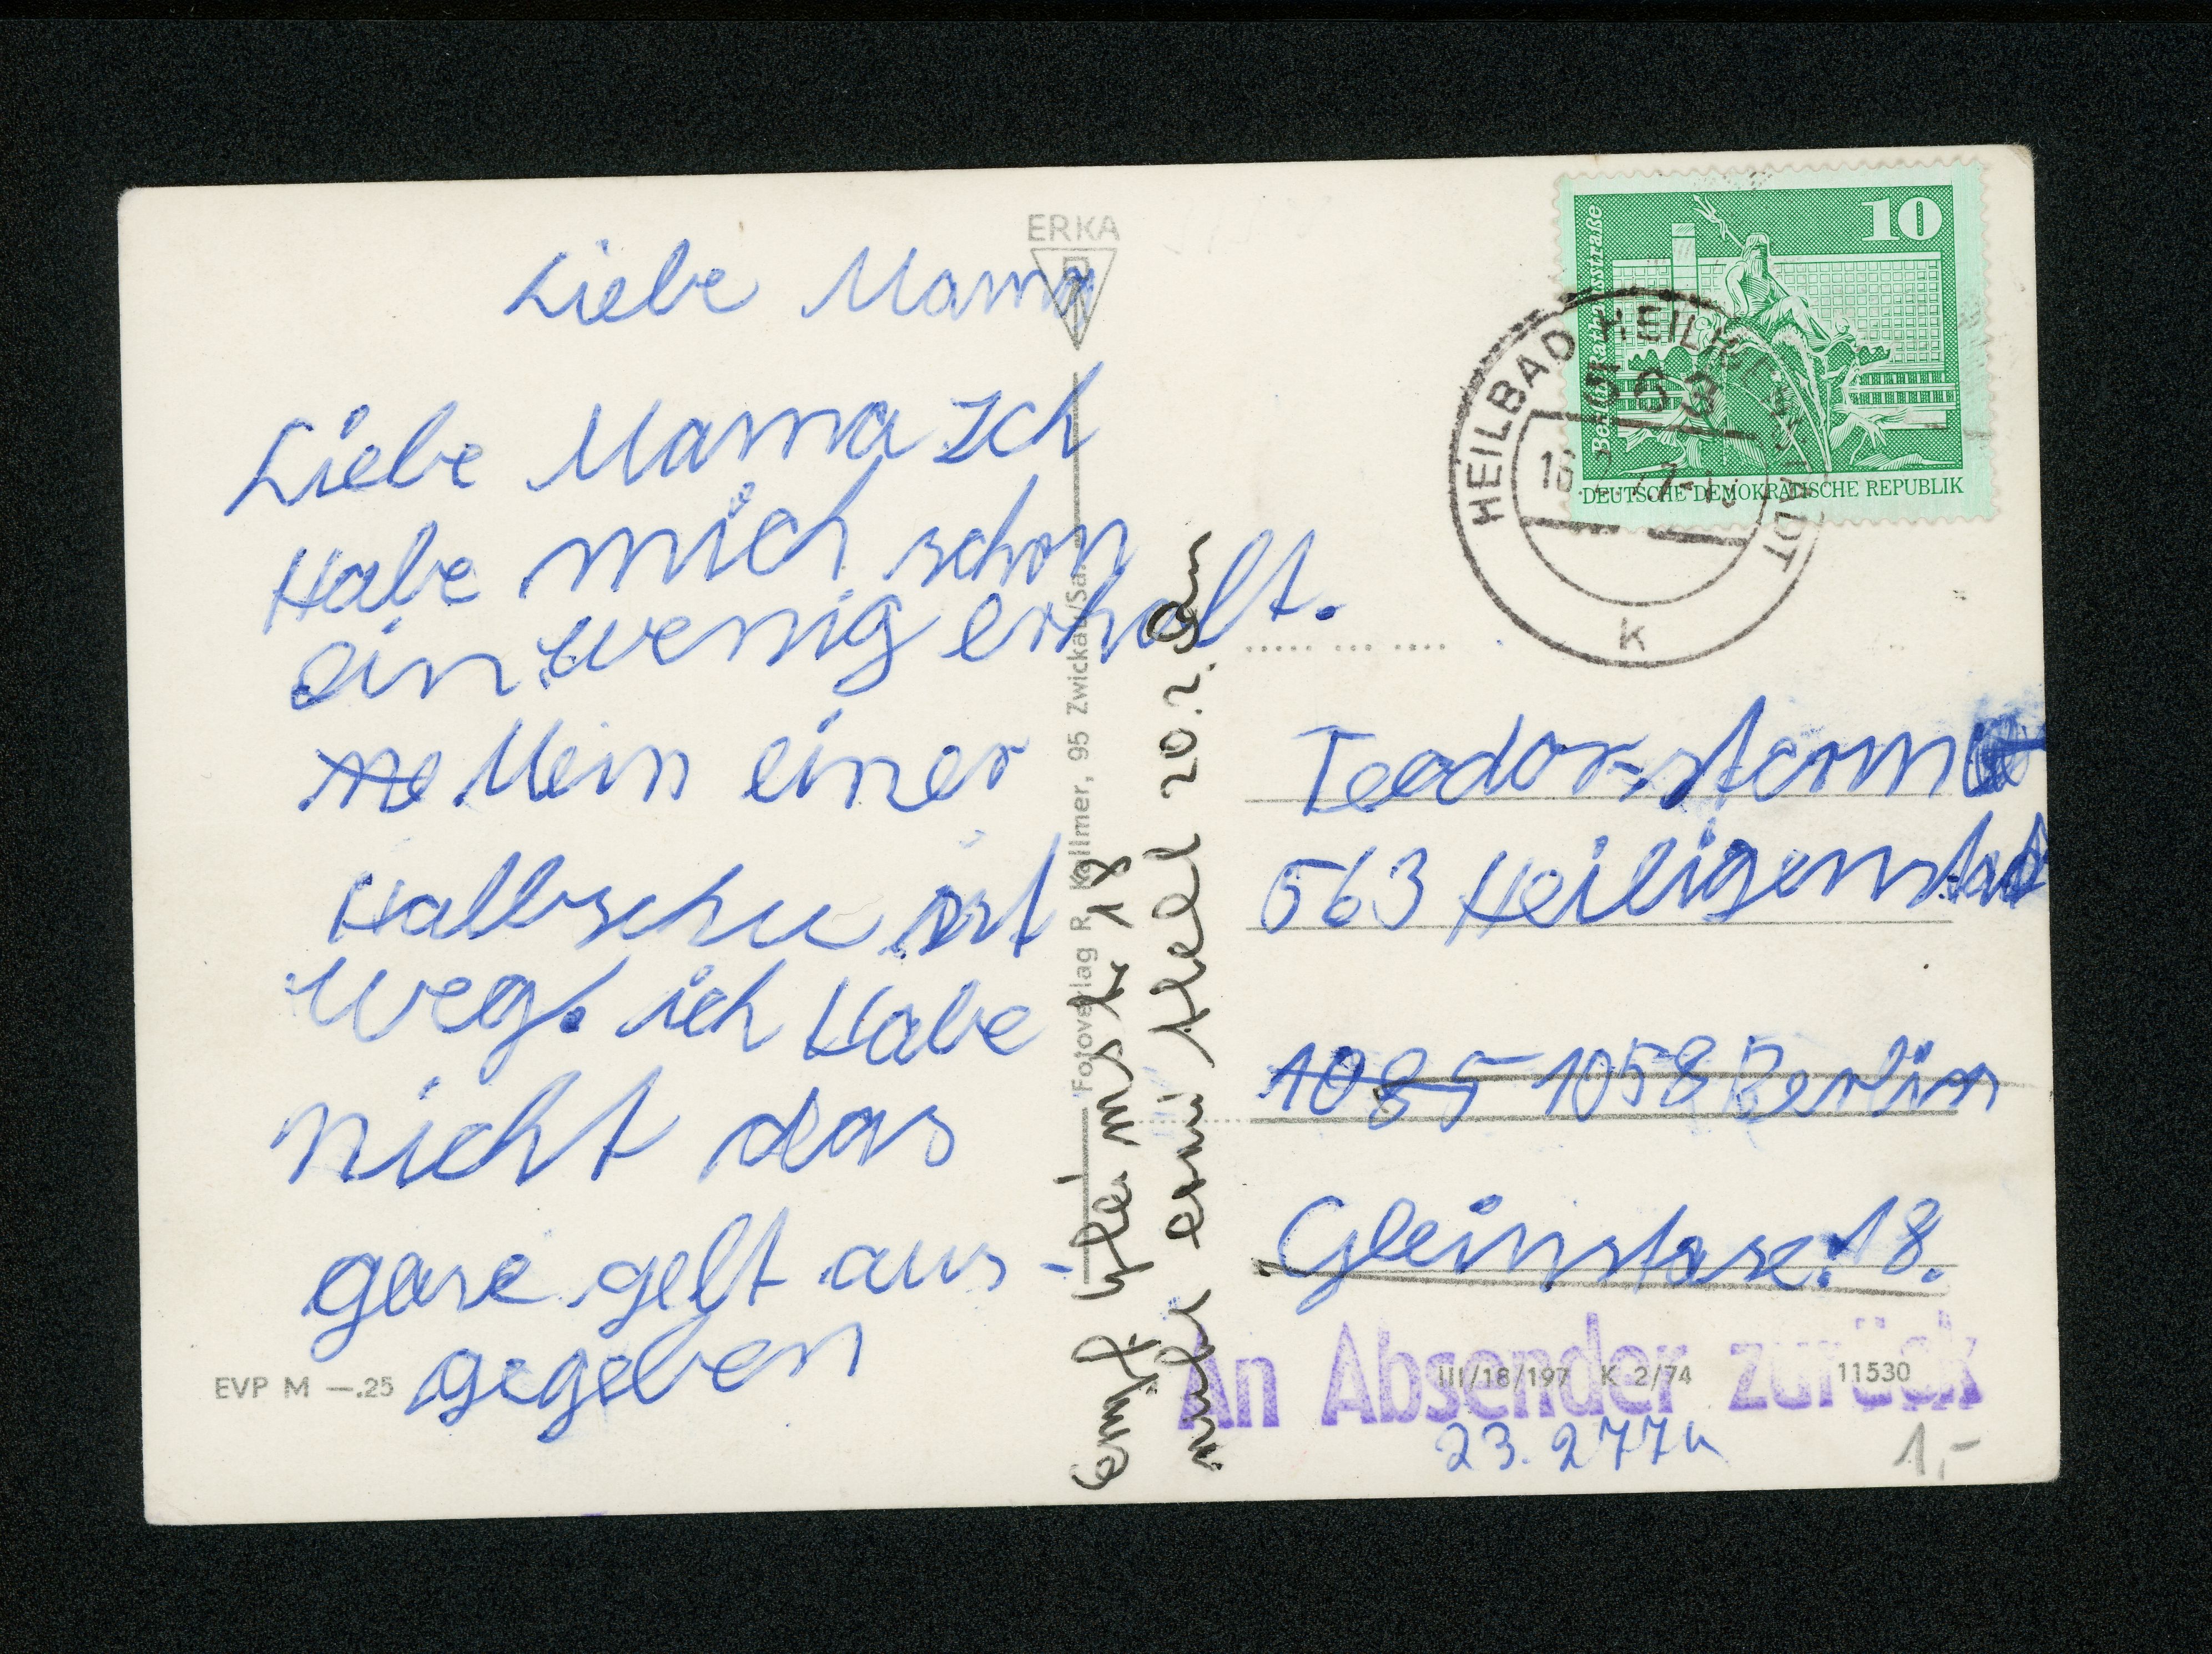 ERKA
Liebe Mama
Liebe Mama Ich
Habe mich schon
ein wenig erholt.
ne Mein einer
Hallbschu ist
weg. ich Habe
nicht das
ganse gelt aus-
gegeben
EVP M —.25
Fotoverlag R. Kallmer, 95 Zwickau/Sa.
Gleimstr 18
20.2.
10
Berlin Rathausstraße
DEUTSCHE DEMOKRATISCHE REPUBLIK
HEILBAD HEILIGENSTADT
563
k
Teodor-storm
563 Heiligenstad
1085 1058 Berlin
Gleinstase: 18.
An Absender zurück
III/18/197 K 2/74 11530
23. 2 77
1,-